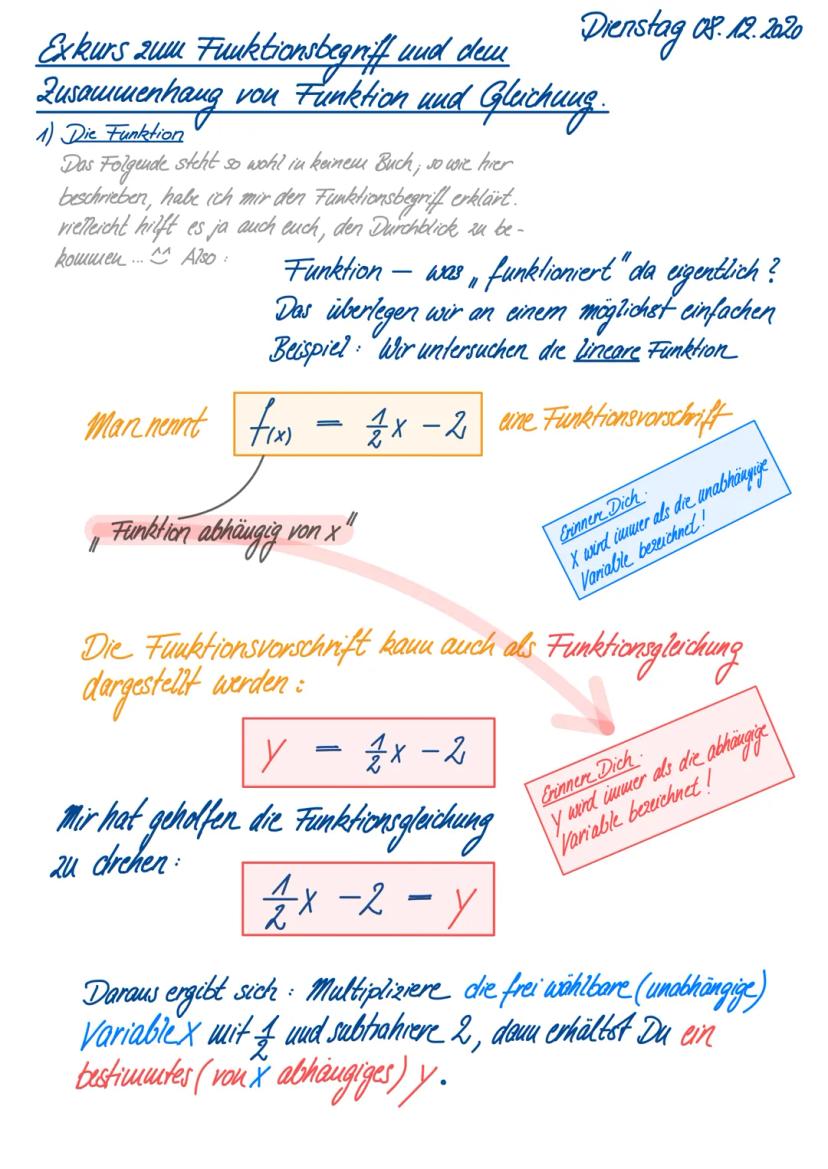 Dienstag 08.12.2020
Exkurs zum Funktionsbegriff und dem
Zusammenhang von Funktion und Gleichung.
1) Die Funktion
Das Folgende steht so wohl in keinem Buch, so wie hier
beschrieben, habe ich mir den Funktionsbegriff erklärt.
vielleicht hilft es ja auch euch, den Durchblick zu be-
kommen ... ^^ Also :
Funktion — was „funktioniert" da eigentlich ?
Das überlegen wir an einem möglichst einfachen
Beispiel : Wir untersuchen die lineare Funktion
Man nennt f(x) = 1/2 x - 2 eine Funktionsvorschrift
„Funktion abhängig von x"
Erinnere Dich :
x wird immer als die unabhängige
Variable bezeichnet !
Die Funktionsvorschrift kann auch als Funktionsgleichung
dargestellt werden :
y = 1/2 x - 2
Erinnere Dich :
y wird immer als die abhängige
Variable bezeichnet !
Mir hat geholfen die Funktionsgleichung
zu drehen :
1/2 x - 2 = y
Daraus ergibt sich : Multipliziere die frei wählbare (unabhängige)
Variable x mit 1/2 und subtrahiere 2, dann erhältst Du ein
bestimmtes (von x abhängiges) y.